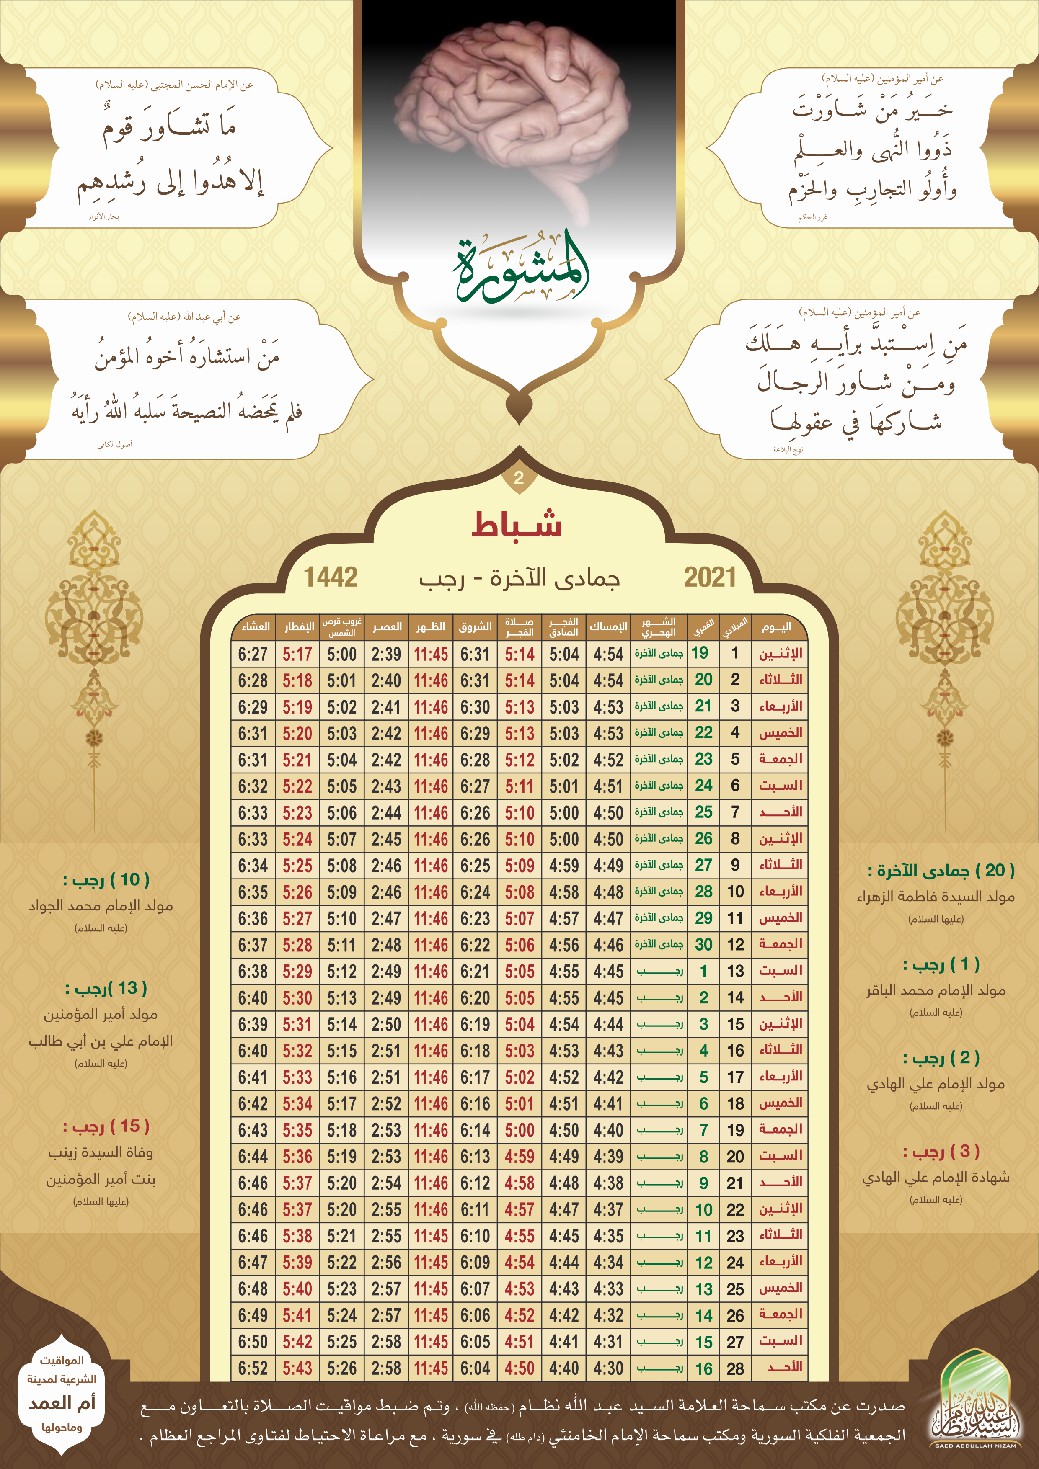 عن أمير المؤمنين (عليه السلام)
خَيرُ مَنْ شَاوَرْتَ
ذَوُوا النُّهى والعِلْم
وأُولُو التجاربِ والحَزْم
غرر الحكم
عن الإمام الحسن المجتبى (عليه السلام)
مَا تَشَاوَرَ قومٌ
إلا هُدُوا إلى رُشدِهِم
بحار الأنوار
المَشُورَة
عن أمير المؤمنين (عليه السلام)
مَنِ اِسْتبدَّ برأيهِ هَلَكَ
ومَنْ شاورَ الرجالَ
شاركهَا في عقولِهَا
نهج البلاغة
عن أبي عبد الله (عليه السلام)
مَنْ استشارَهُ أخوهُ المؤمنُ
فلم يَمحَضهُ النصيحةَ سَلبهُ اللهُ رأيَهُ
أصول الكافي
2
شباط
2021 جمادى الآخرة - رجب 1442
اليوم الميلادي القمري الشهر الهجري الإمساك الفجر الصادق صلاة الفجر الشروق الظهر العصر غروب قرص الشمس الإفطار العشاء
الإثنين 1 19 جمادى الآخرة 4:54 5:04 5:14 6:31 11:45 2:39 5:00 5:17 6:27
الثلاثاء 2 20 جمادى الآخرة 4:54 5:04 5:14 6:31 11:46 2:40 5:01 5:18 6:28
الأربعاء 3 21 جمادى الآخرة 4:53 5:03 5:13 6:30 11:46 2:41 5:02 5:19 6:29
الخميس 4 22 جمادى الآخرة 4:53 5:03 5:13 6:29 11:46 2:42 5:03 5:20 6:31
الجمعة 5 23 جمادى الآخرة 4:52 5:02 5:12 6:28 11:46 2:42 5:04 5:21 6:31
السبت 6 24 جمادى الآخرة 4:51 5:01 5:11 6:27 11:46 2:43 5:05 5:22 6:32
الأحد 7 25 جمادى الآخرة 4:50 5:00 5:10 6:26 11:46 2:44 5:06 5:23 6:33
الإثنين 8 26 جمادى الآخرة 4:50 5:00 5:10 6:26 11:46 2:45 5:07 5:24 6:33
الثلاثاء 9 27 جمادى الآخرة 4:49 4:59 5:09 6:25 11:46 2:46 5:08 5:25 6:34
الأربعاء 10 28 جمادى الآخرة 4:48 4:58 5:08 6:24 11:46 2:46 5:09 5:26 6:35
الخميس 11 29 جمادى الآخرة 4:47 4:57 5:07 6:23 11:46 2:47 5:10 5:27 6:36
الجمعة 12 30 جمادى الآخرة 4:46 4:56 5:06 6:22 11:46 2:48 5:11 5:28 6:37
السبت 13 1 رجب 4:45 4:55 5:05 6:21 11:46 2:49 5:12 5:29 6:38
الأحد 14 2 رجب 4:45 4:55 5:05 6:20 11:46 2:49 5:13 5:30 6:40
الإثنين 15 3 رجب 4:44 4:54 5:04 6:19 11:46 2:50 5:14 5:31 6:39
الثلاثاء 16 4 رجب 4:43 4:53 5:03 6:18 11:46 2:51 5:15 5:32 6:40
الأربعاء 17 5 رجب 4:42 4:52 5:02 6:17 11:46 2:51 5:16 5:33 6:41
الخميس 18 6 رجب 4:41 4:51 5:01 6:16 11:46 2:52 5:17 5:34 6:42
الجمعة 19 7 رجب 4:40 4:50 5:00 6:14 11:46 2:53 5:18 5:35 6:43
السبت 20 8 رجب 4:39 4:49 4:59 6:13 11:46 2:53 5:19 5:36 6:44
الأحد 21 9 رجب 4:38 4:48 4:58 6:12 11:46 2:54 5:20 5:37 6:46
الإثنين 22 10 رجب 4:37 4:47 4:57 6:11 11:46 2:55 5:20 5:37 6:46
الثلاثاء 23 11 رجب 4:35 4:45 4:55 6:10 11:45 2:55 5:21 5:38 6:46
الأربعاء 24 12 رجب 4:34 4:44 4:54 6:09 11:45 2:56 5:22 5:39 6:47
الخميس 25 13 رجب 4:33 4:43 4:53 6:07 11:45 2:57 5:23 5:40 6:48
الجمعة 26 14 رجب 4:32 4:42 4:52 6:06 11:45 2:57 5:24 5:41 6:49
السبت 27 15 رجب 4:31 4:41 4:51 6:05 11:45 2:58 5:25 5:42 6:50
الأحد 28 16 رجب 4:30 4:40 4:50 6:04 11:45 2:58 5:26 5:43 6:52
( 20 ) جمادى الآخرة :
مولد السيدة فاطمة الزهراء
(عليها السلام)
( 1 ) رجب :
مولد الإمام محمد الباقر
(عليه السلام)
( 2 ) رجب :
مولد الإمام علي الهادي
(عليه السلام)
( 3 ) رجب :
شهادة الإمام علي الهادي
(عليه السلام)
( 10 ) رجب :
مولد الإمام محمد الجواد
(عليه السلام)
( 13 )رجب :
مولد أمير المؤمنين
الإمام علي بن أبي طالب
(عليه السلام)
( 15 ) رجب :
وفاة السيدة زينب
بنت أمير المؤمنين
(عليها السلام)
صدرت عن مكتب سماحة العلامة السيد عبد الله نظام (حفظه الله) ، وتم ضبط مواقيت الصلاة بالتعاون مع
الجمعية الفلكية السورية ومكتب سماحة الإمام الخامنئي (دام ظله) في سورية ، مع مراعاة الاحتياط لفتاوى المراجع العظام .
المواقيت
الشرعية لمدينة
أم العمد
وماحولها
السيد عبد الله نظام
SAED ABDULLAH NIZAM